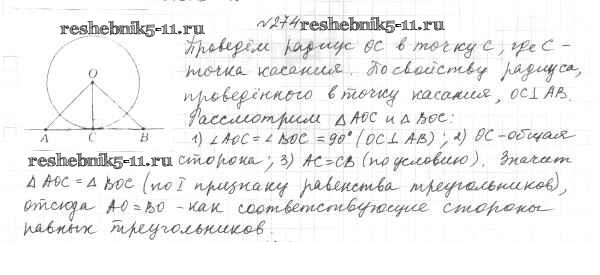 reshebnik5-11.ru
№274 reshebnik5-11.ru
Проведём радиус OC в точку C, где C -
точка касания. По свойству радиуса,
проведённого в точку касания, OC⊥AB.
Рассмотрим △AOC и △BOC:
1) ∠AOC = ∠BOC = 90° (OC⊥AB); 2) OC - общая
O
A C B
reshebnik5-11.ru сторона; 3) AC=CB (по условию). Значит
△AOC = △BOC (по I признаку равенства треугольников),
отсюда AO=BO - как соответствующие стороны
равных треугольников.